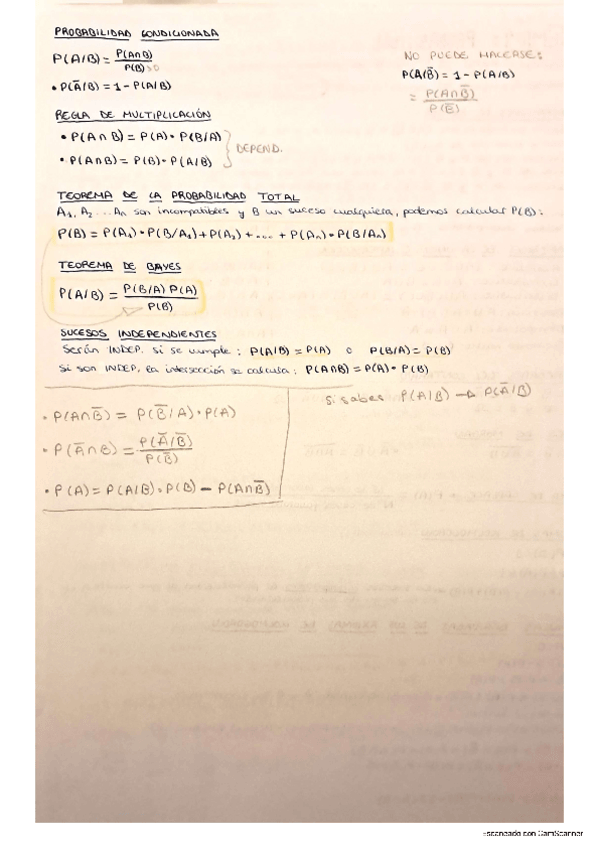 PROBABILIDAD CONDICIONADA
P(A/B) = P(A∩B) / P(B)>0
• P(A̅/B) = 1 - P(A/B)
NO PUEDE HACERSE:
P(A/B̅) = 1 - P(A/B)
= P(A∩B̅) / P(B̅)
REGLA DE MULTIPLICACIÓN
• P(A∩B) = P(A) • P(B/A)
• P(A∩B) = P(B) • P(A/B)
DEPEND.
TEOREMA DE LA PROBABILIDAD TOTAL
A₁, A₂ ... An son incompatibles y B un suceso cualquiera, podemos calcular P(B):
P(B) = P(A₁) • P(B/A₁) + P(A₂) + ... + P(An) • P(B/An)
TEOREMA DE BAYES
P(A/B) = P(B/A) P(A) / P(B)
SUCESOS INDEPENDIENTES
Serán INDEP. si se cumple: P(A/B) = P(A) o P(B/A) = P(B)
Si son INDEP, la intersección se calcula: P(A∩B) = P(A) • P(B)
Si sabes P(A/B) → P(A̅/B)
• P(A∩B̅) = P(B̅/A) • P(A)
• P(A̅∩B) = P(A̅/B̅) / P(B̅)
• P(A) = P(A/B) • P(B) - P(A∩B̅)
Escaneado con CamScanner